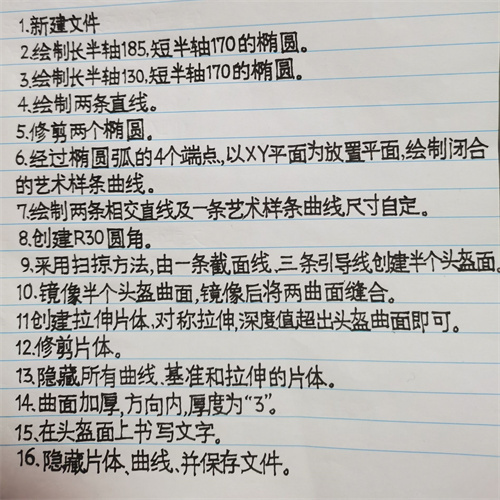 1.新建文件
2.绘制长半轴185,短半轴170的椭圆。
3.绘制长半轴130.短半轴170的椭圆。
4.绘制两条直线。
5.修剪两个椭圆。
6.经过椭圆弧的4个端点,以XY平面为放置平面,绘制闭合
的艺术样条曲线。
7.绘制两条相交直线及一条艺术样条曲线,尺寸自定。
8.创建R30圆角。
9.采用扫掠方法,由一条截面线、三条引导线创建半个头盔曲面。
10.镜像半个头盔曲面,镜像后将两曲面缝合。
11创建拉伸片体、对称拉伸,深度值超出头盔曲面即可。
12.修剪片体。
13.隐藏所有曲线、基准和拉伸的片体。
14.曲面加厚,方向内,厚度为“3”。
15.在头盔面上书写文字。
16.隐藏片体、曲线、并保存文件。